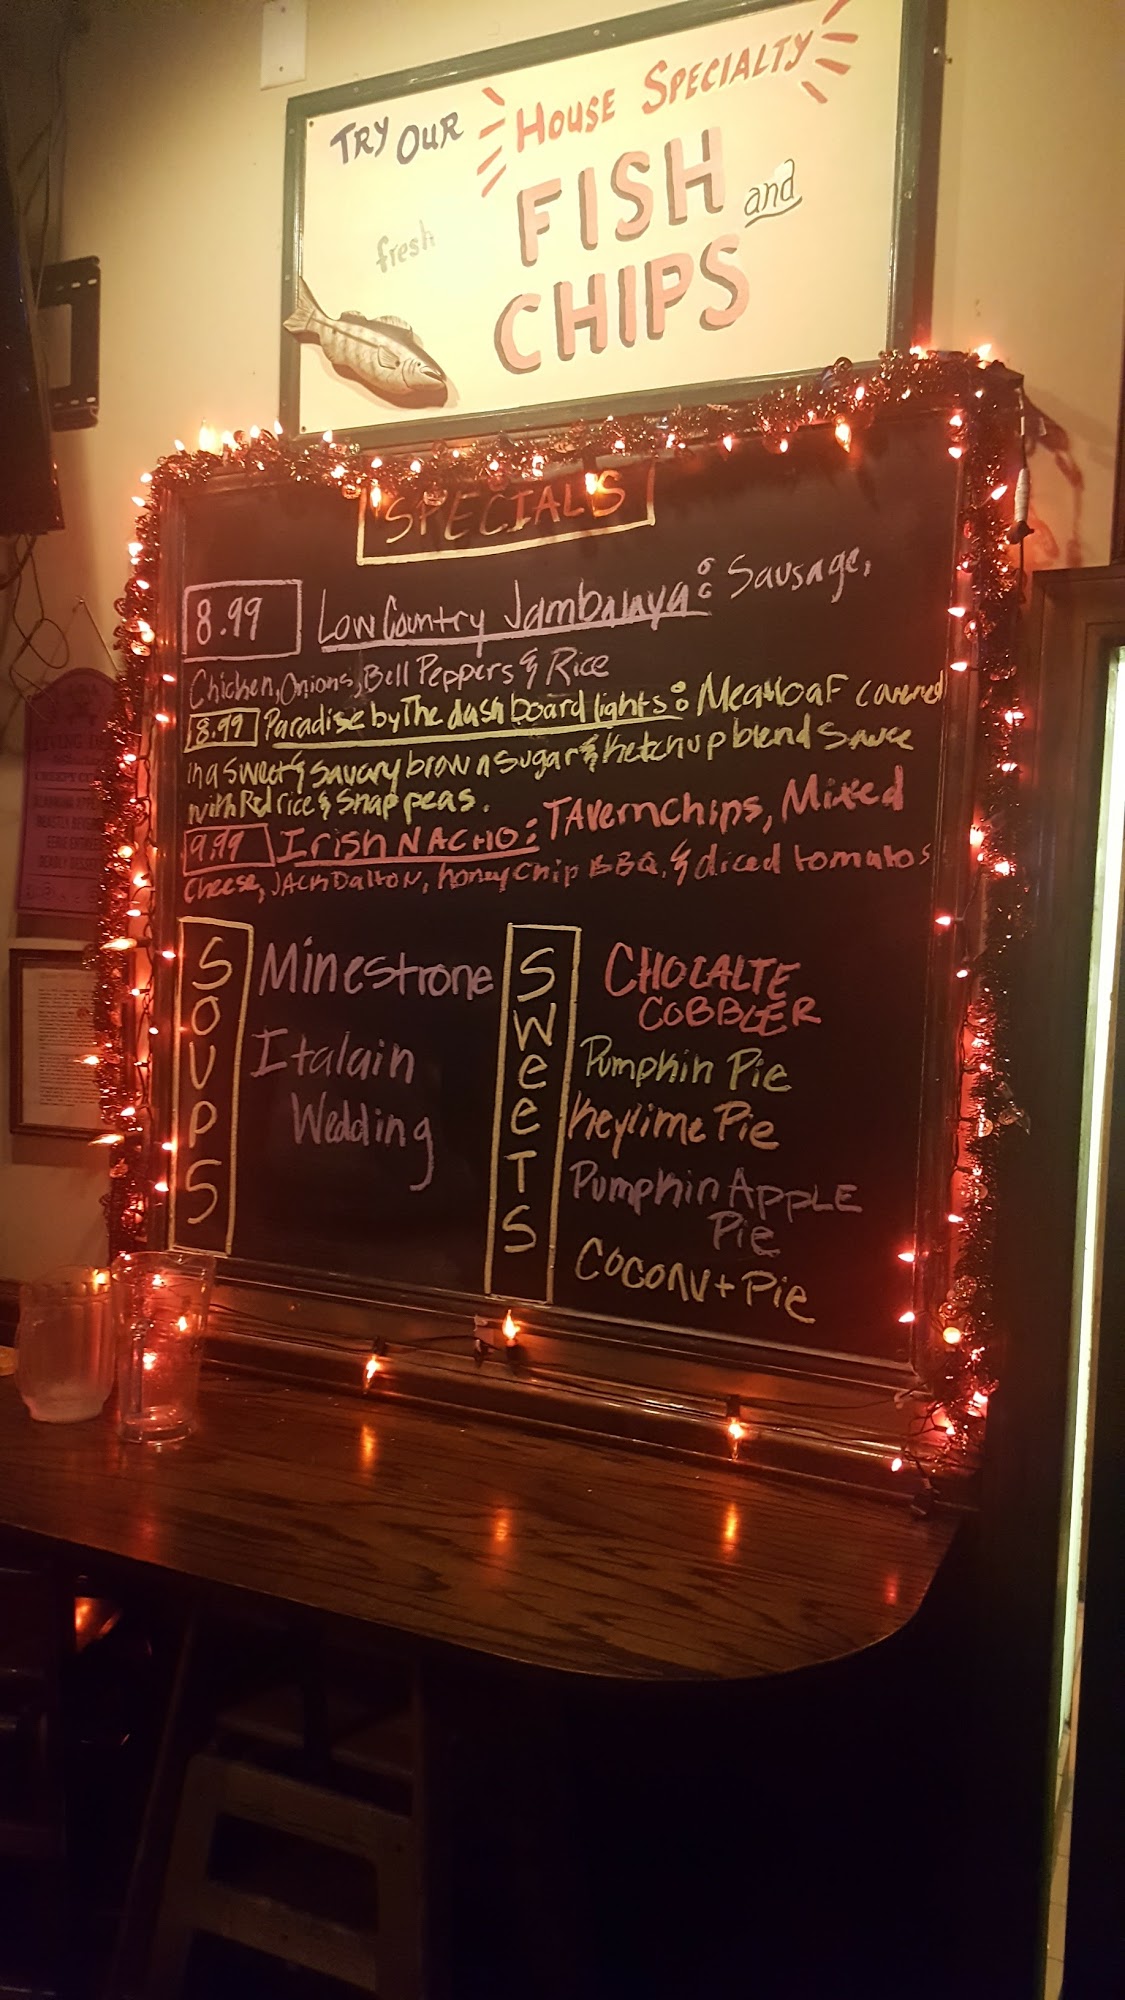 TRY OUR HOUSE SPECIALTY
fresh FISH and
CHIPS
SPECIALS
8.99 Low Country Jambalaya: Sausage,
Chicken, Onions, Bell Peppers & Rice
8.99 Paradise by The dash board lights: Meatloaf covered
in a sweet & savory brown sugar & Ketchup blend Sauce
with Red rice & Snap peas.
9.99 Irish NACHO: TAvern chips, Mixed
cheese, JACK DALTON, honey Chip BBQ, & diced tomatos
SOUPS
Minestrone
Italain
Wedding
SWeeTS
CHOCALTE
COBBLER
Pumpkin Pie
Keylime Pie
Pumpkin APPLE
Pie
Coconut Pie